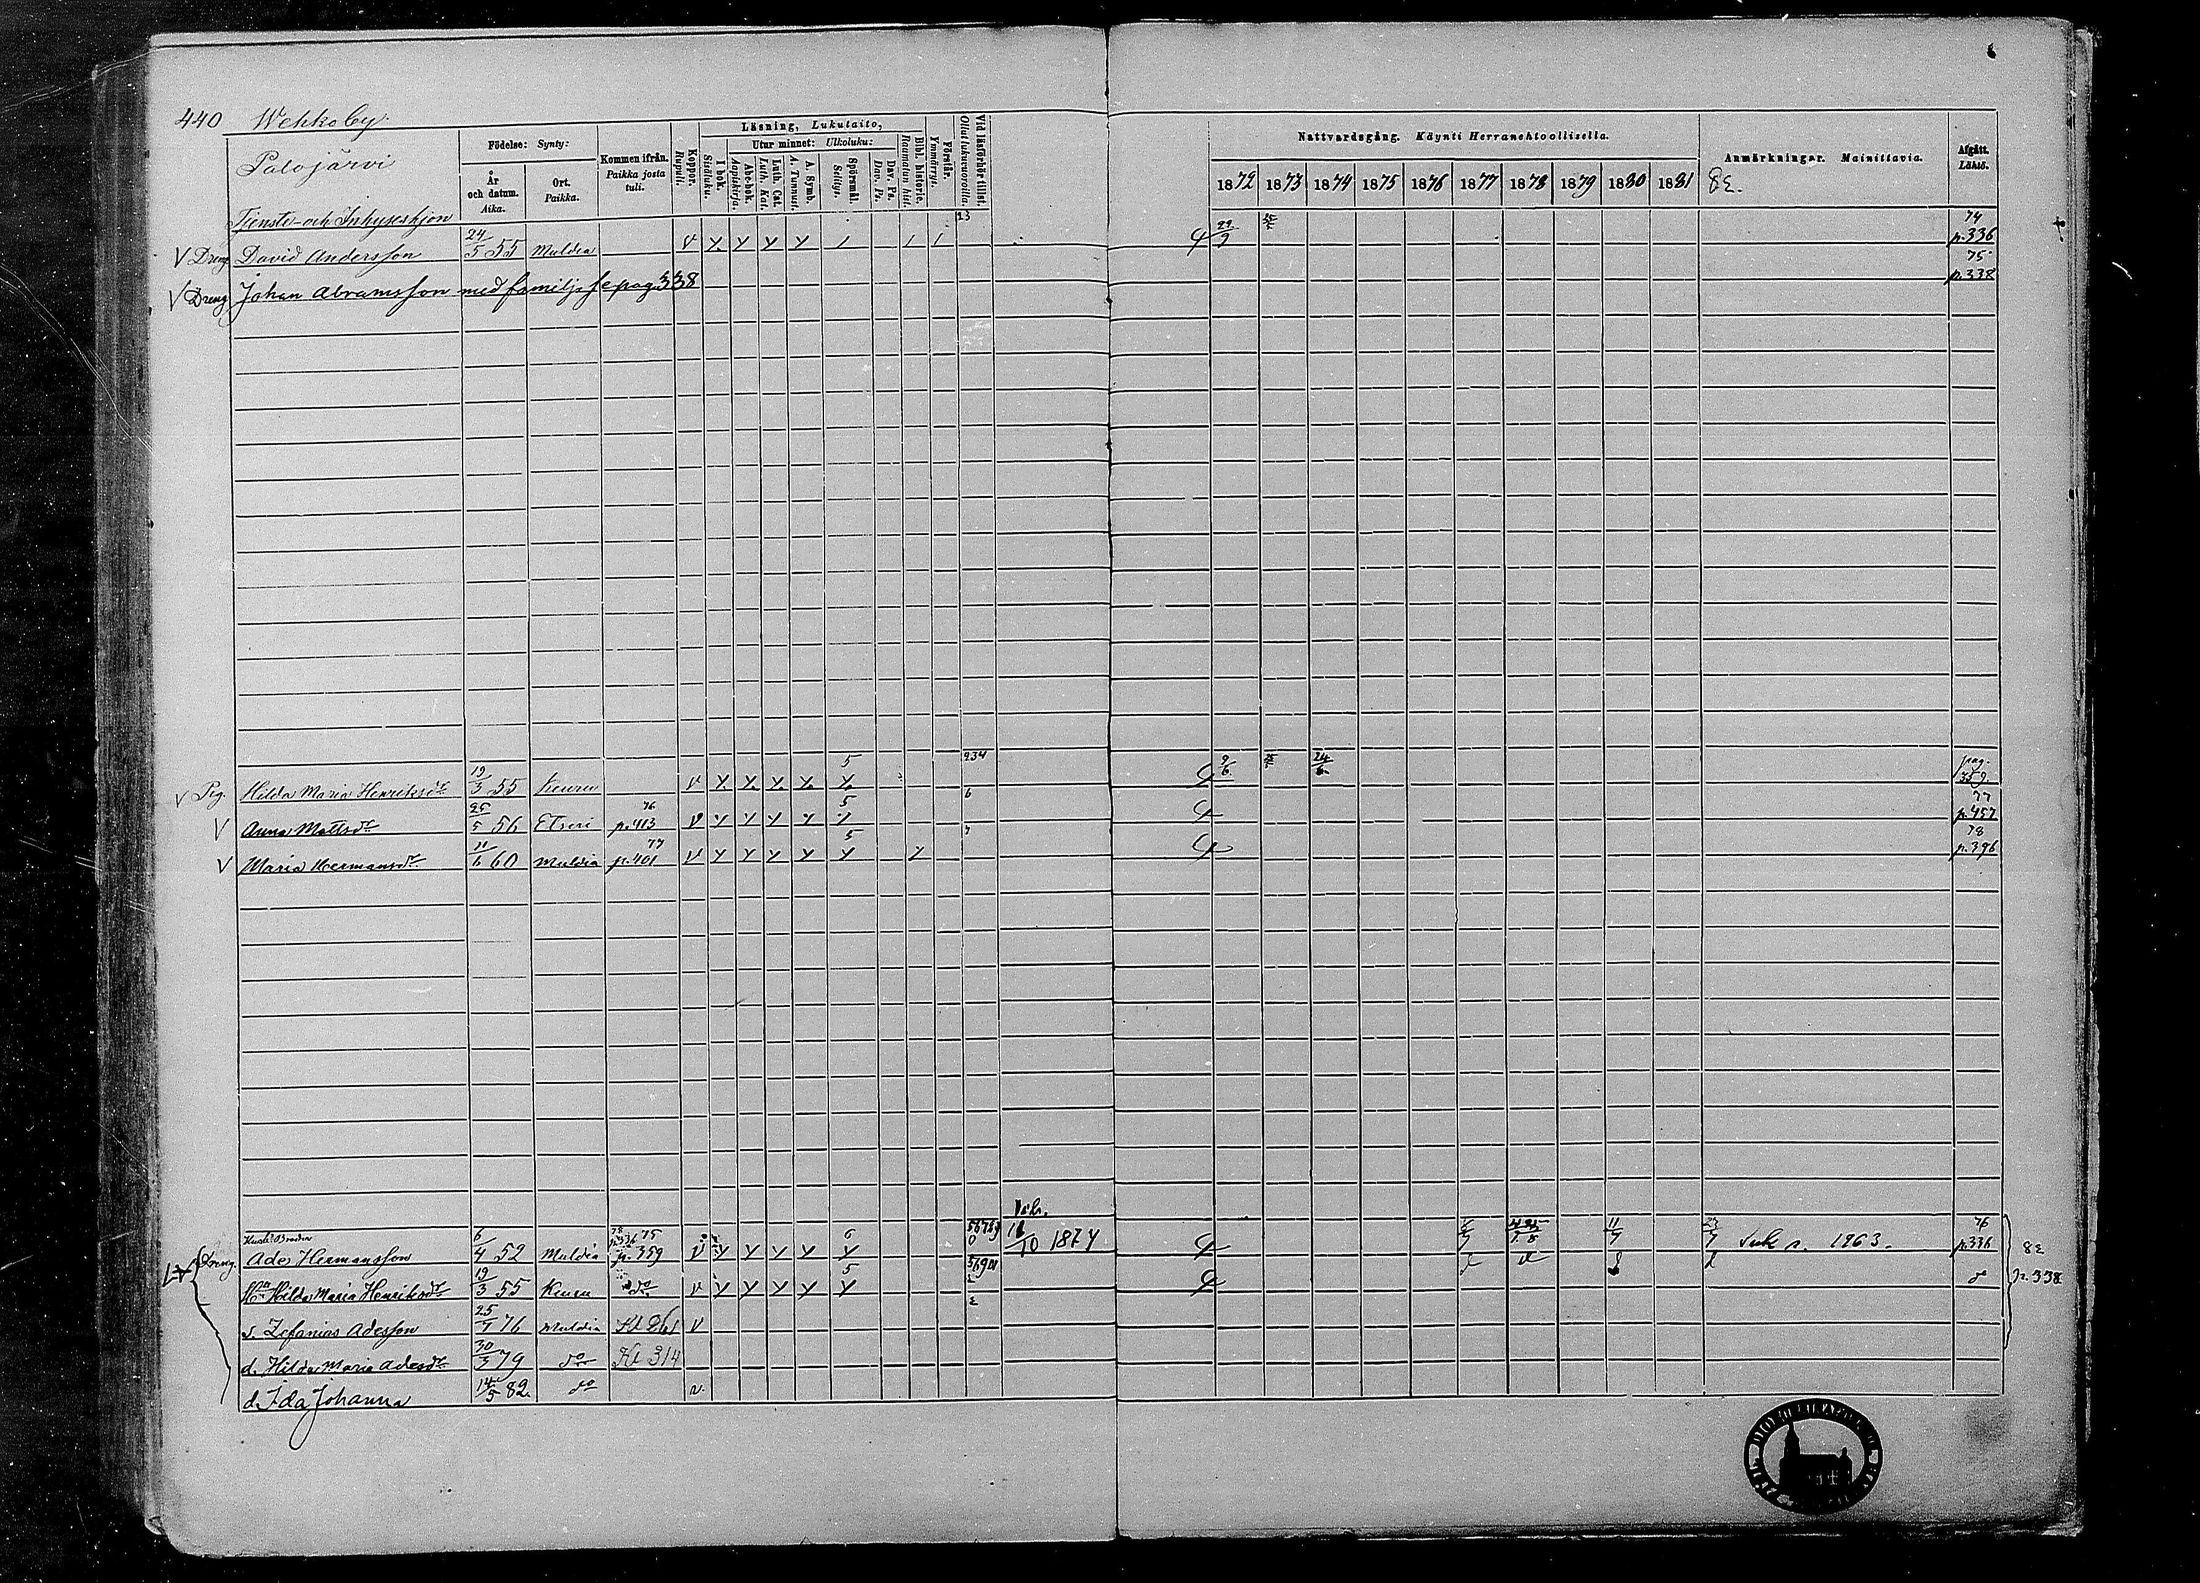 440 Wehkoby.
Palojärvi
Tjenste- och Inhyseshjon
Födelse: Synty:
År och datum. Aika.
Ort. Paikka.
Kommen ifrån. Paikka josta tuli.
Koppor. Rupuli.
Läsning, Lukutaito,
I bok. Sisäluku.
Utur minnet: Ulkoluku:
Abc-bok. Aapiskirja.
Luth. Cat. Luth. Kat.
A. Symb. A. Tunnust.
Spörsmål. Selitys.
Dav. Ps. Dav. Ps.
Bibl. historie. Raamatun hist.
Förstår. Ymmärrys.
Vid läsförhör tillst. Ollut lukuvuoroilla.
Nattvardsgång. Käynti Herranehtoollisella.
1872 1873 1874 1875 1876 1877 1878 1879 1880 1881
Anmärkningar. Muinittavia.
82.
Afgått. Lähtö.
V Dreng David Andersson 24/5 55 Muldia V 23 29/9 74 p. 336
V Dreng Johan Abramsson med familj se pag. 338 75 p. 338
V Pig. Hilda Maria Henriksdr 19/3 55 Keuru V 5 234 9/6 24/6 pag. 359.
V Anna Mattsdr 25/5 56 Etseri 76 p. 413 V 5 6 77 p. 457
V Maria Hermansdr 11/6 60 Muldia 77 p. 401 V 5 7 78 p. 396
Dreng. Ades Hermansson 6/4 52 Muldia 75 p. 359 V 6 Vih. 11/10 1874 11/7 23/7 1863. 76 p. 336
Hu Hilda Maria Henriksdr 19/3 55 Keuru do V 5
82 p. 338
s. Zefanias Adesson 25/7 76 Muldia Kl 261 V
d. Hilda Maria Adesdr 30/3 79 do Kl 314
d. Ida Johanna 14/5 82. do v.